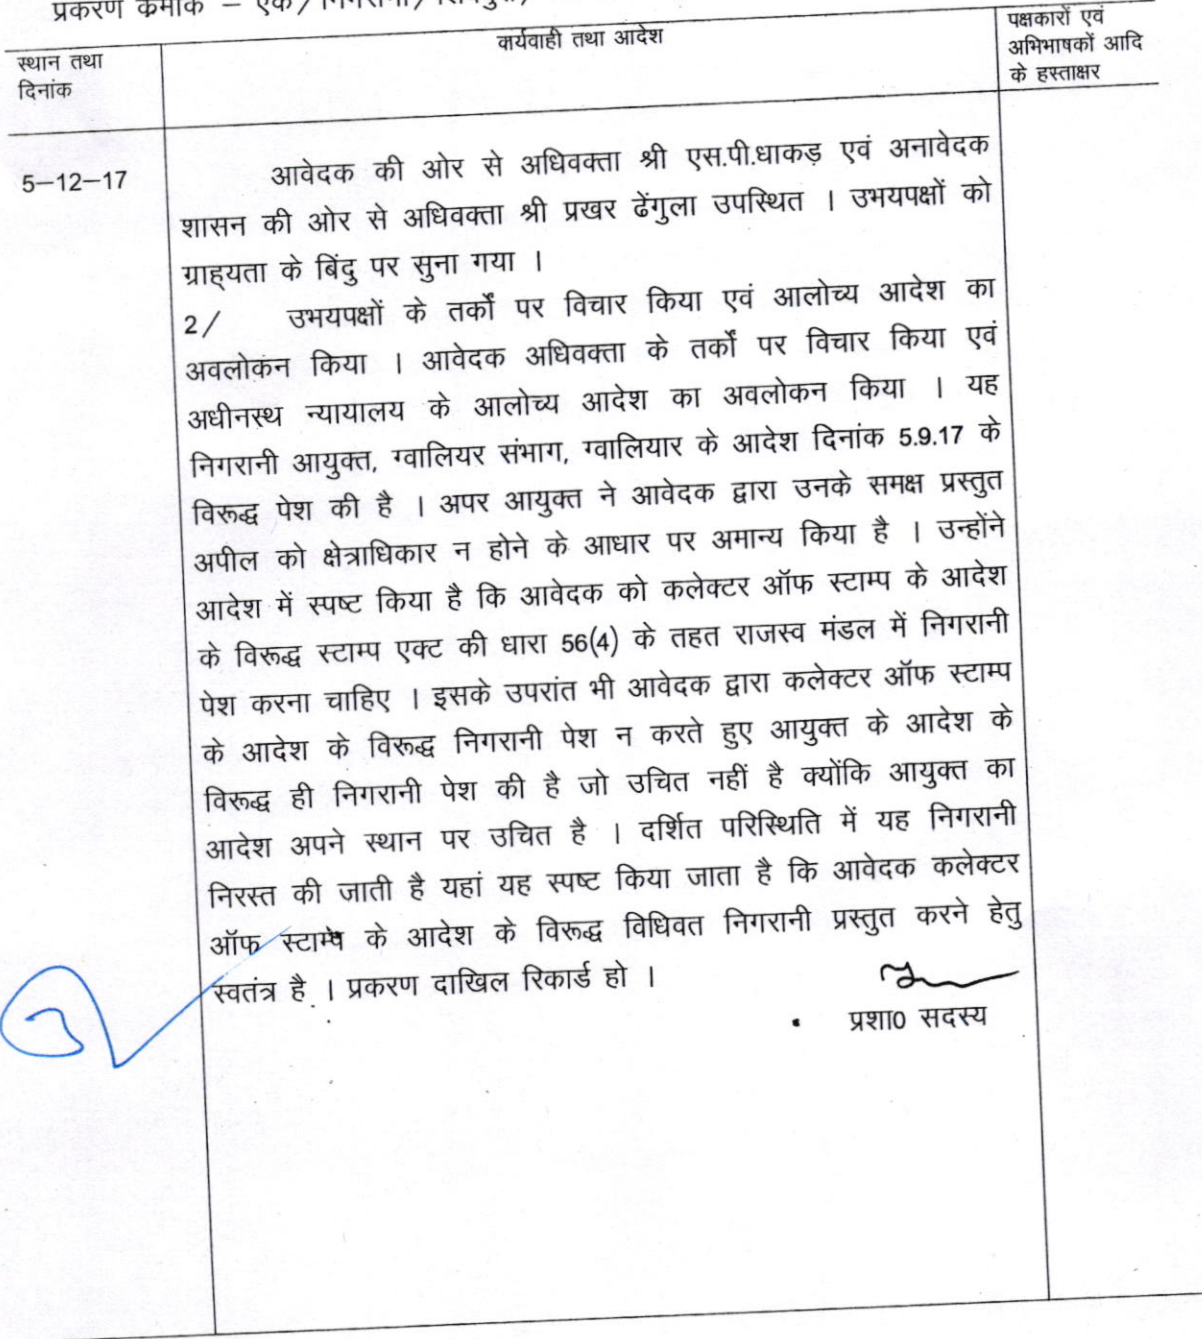 प्रकरण क्रमांक – एक / निगरानी /
स्थान तथा
दिनांक
कार्यवाही तथा आदेश
पक्षकारों एवं
अभिभाषकों आदि
के हस्ताक्षर
5–12–17
आवेदक की ओर से अधिवक्ता श्री एस.पी.धाकड़ एवं अनावेदक
शासन की ओर से अधिवक्ता श्री प्रखर ढेंगुला उपस्थित । उभयपक्षों को
ग्राह्यता के बिंदु पर सुना गया ।
2/ उभयपक्षों के तर्कों पर विचार किया एवं आलोच्य आदेश का
अवलोकन किया । आवेदक अधिवक्ता के तर्कों पर विचार किया एवं
अधीनस्थ न्यायालय के आलोच्य आदेश का अवलोकन किया । यह
निगरानी आयुक्त, ग्वालियर संभाग, ग्वालियार के आदेश दिनांक 5.9.17 के
विरूद्ध पेश की है । अपर आयुक्त ने आवेदक द्वारा उनके समक्ष प्रस्तुत
अपील को क्षेत्राधिकार न होने के आधार पर अमान्य किया है । उन्होंने
आदेश में स्पष्ट किया है कि आवेदक को कलेक्टर ऑफ स्टाम्प के आदेश
के विरूद्ध स्टाम्प एक्ट की धारा 56(4) के तहत राजस्व मंडल में निगरानी
पेश करना चाहिए । इसके उपरांत भी आवेदक द्वारा कलेक्टर ऑफ स्टाम्प
के आदेश के विरूद्ध निगरानी पेश न करते हुए आयुक्त के आदेश के
विरूद्ध ही निगरानी पेश की है जो उचित नहीं है क्योंकि आयुक्त का
आदेश अपने स्थान पर उचित है । दर्शित परिस्थिति में यह निगरानी
निरस्त की जाती है यहां यह स्पष्ट किया जाता है कि आवेदक कलेक्टर
ऑफ स्टाम्प के आदेश के विरूद्ध विधिवत निगरानी प्रस्तुत करने हेतु
स्वतंत्र है । प्रकरण दाखिल रिकार्ड हो ।
प्रशा0 सदस्य